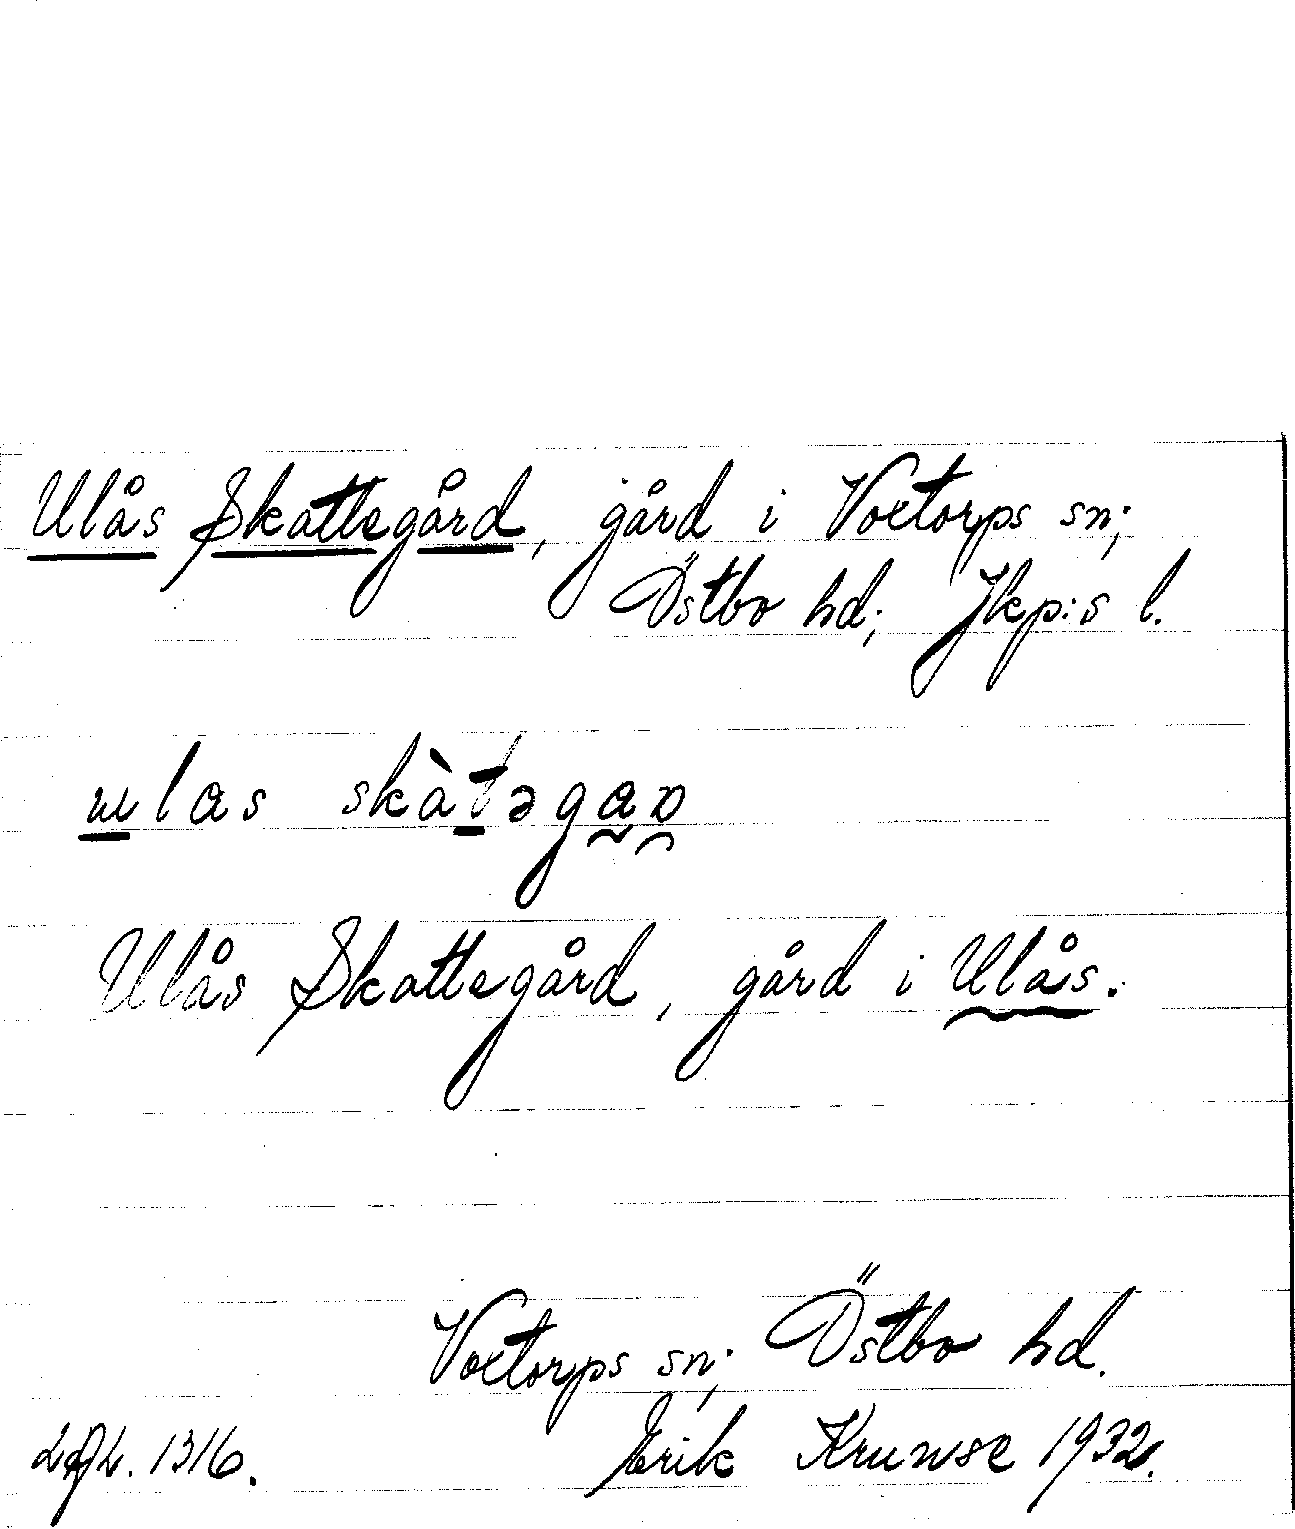 Ulås Skattegård, gård i Voxtorps sn;
Östbo hd; Jkp:s l.
ulas skàtəgaɒ
Ulås Skattegård, gård i Ulås.
Voxtorps sn; Östbo hd.
1316. Erik Kruuse 1932.